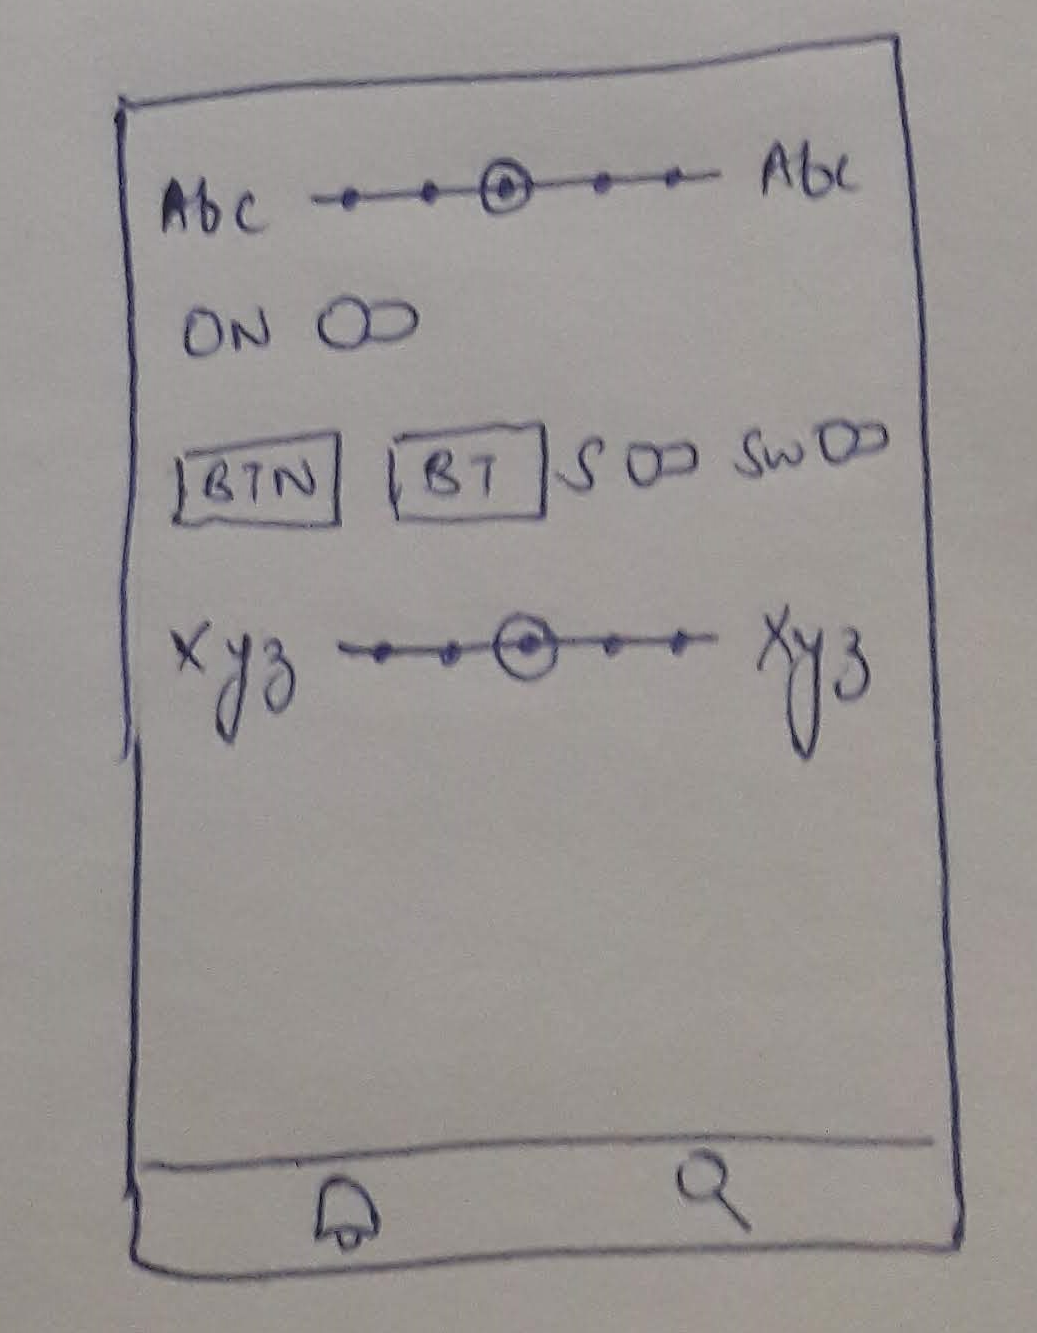 Abc Abc
ON
BTN BT S SW
Xyz Xyz